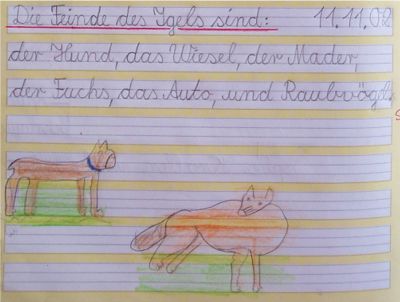 Die Feinde des Igels sind: 11.11.08
der Hund, das Wiesel, der Mader,
der Fuchs, das Auto, und Raubvögel